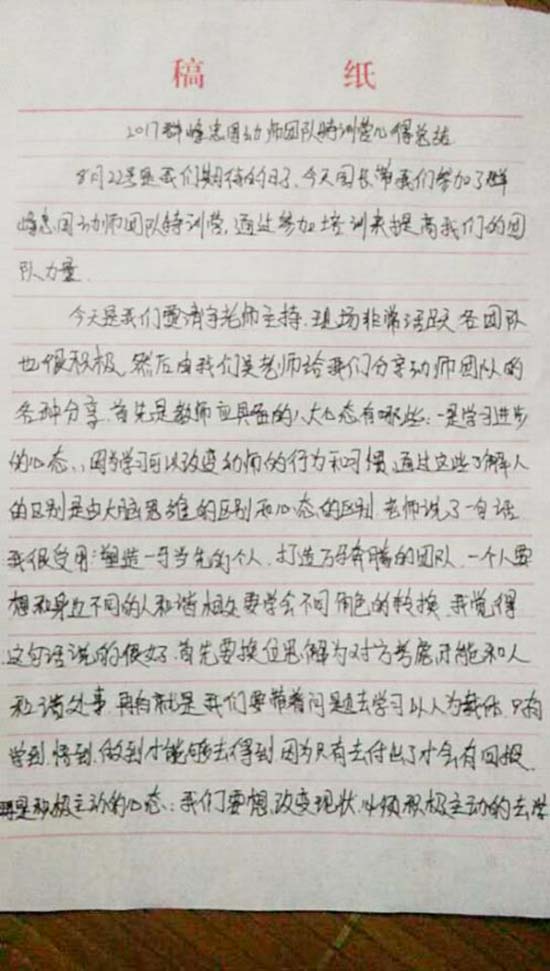 稿 纸
2017群峰忠国幼师团队特训营心得总结
8月22号是我们期待的日子，今天园长带我们参加了群
峰忠国幼师团队特训营，通过参加培训来提高我们的团
队力量
今天是我们邀请宇老师主持，现场非常活跃各团队
也很积极，然后由我们吴老师给我们分享幼师团队的
各种分享，首先是教师应具备的八大心态有哪些：一是学习进步
的心态，因为学习可以改变幼师的行为和习惯，通过这些了解人
的区别是由大脑思维的区别和心态的区别，老师说了一句话
我很受用：塑造一马当先的个人，打造万马奔腾的团队，一个人要
想和身边不同的人和谐相交要学会不同角色的转换，我觉得
这句话说的很好，首先要换位思解为对方考虑，才能和人
和谐处事，再有就是我们要带着问题去学习以人为载体，只有
学到，悟到，做到才能够去得到，因为只有去付出了才会有回报，
二是积极主动的心态：我们要想改变现状，必须积极主动的去学